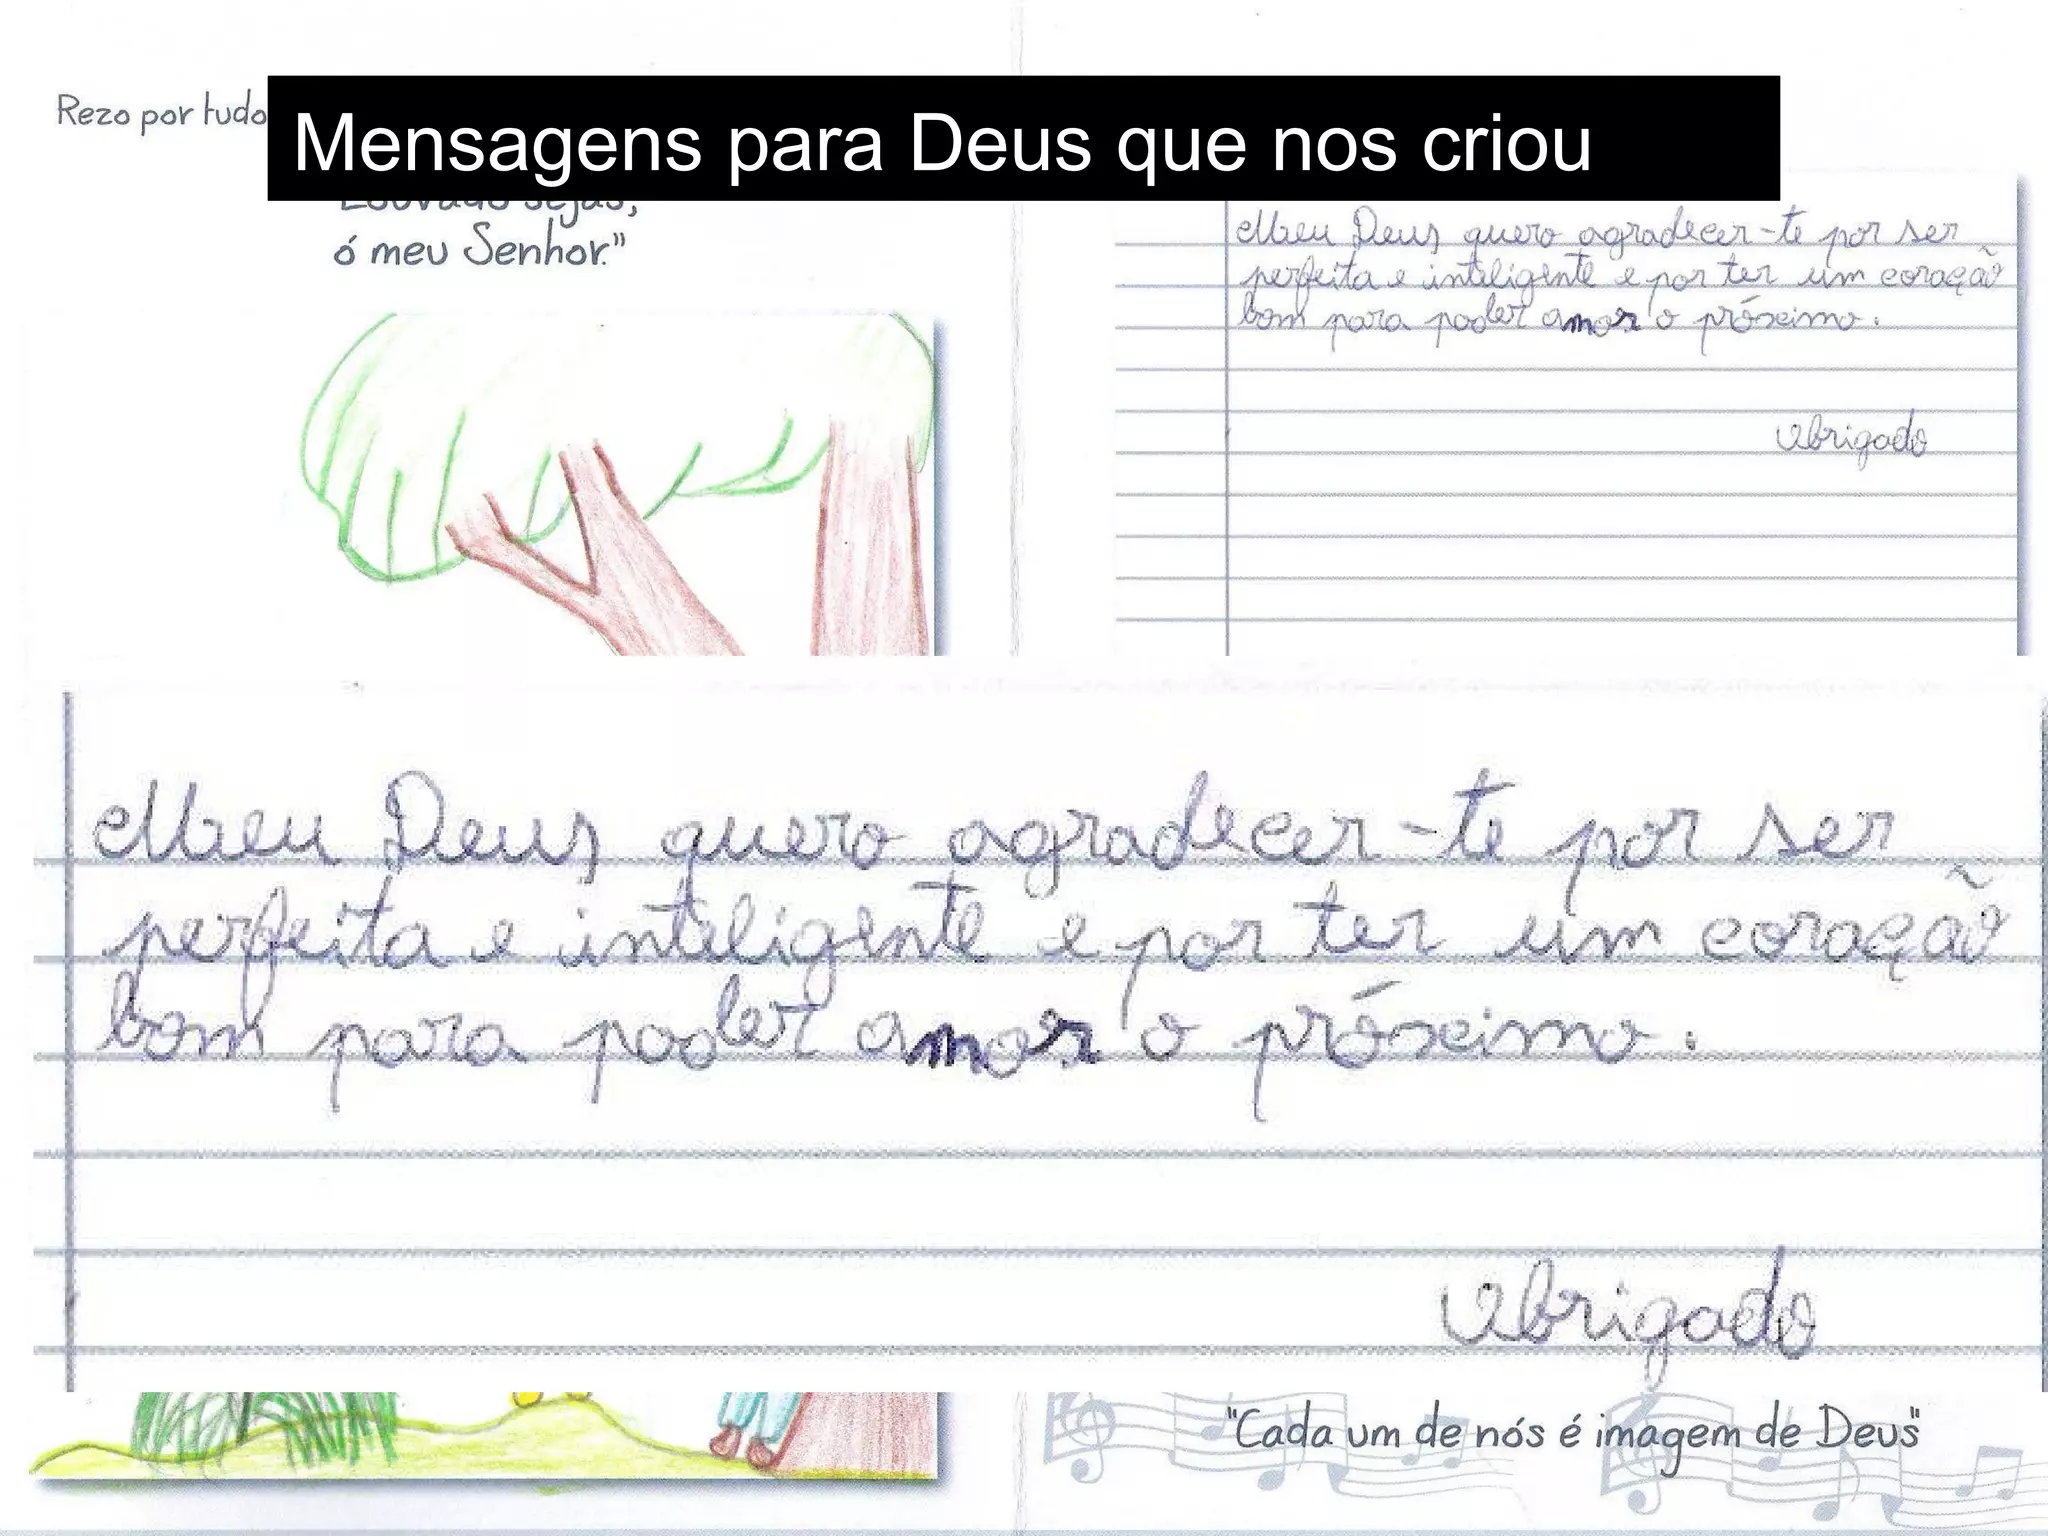 Mensagens para Deus que nos criou
Rezo por tudo
"Louvado sejas,
ó meu Senhor."
Meu Deus quero agradecer-te por ser
perfeita e inteligente e por ter um coração
bom para poder amar o próximo.
Obrigado
Meu Deus quero agradecer-te por ser
perfeita e inteligente e por ter um coração
bom para poder amar o próximo.
Obrigado
"Cada um de nós é imagem de Deus"